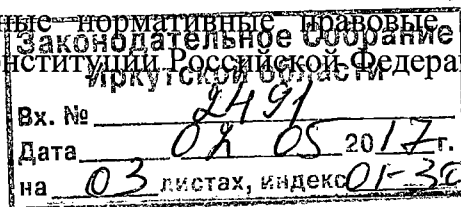 нормативные правовые
Законодательное Собрание
Конституции Российской Федера
Иркутской области
Вх. № 2491
Дата 02 05 2017г.
на 03 листах, индекс 01-30